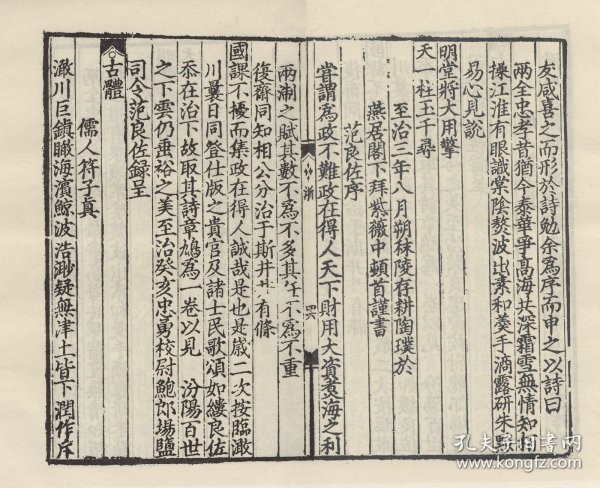 友咸喜之而形於詩勉余爲序而申之以詩曰
兩全忠孝昔猶今泰華爭高海共深霜雪無情知
操江淮有眼識棠陰熬波出素和羮手滴露研朱點
易心見説
明堂將大用擎
天一柱玉千尋
至治三年八月朔秣陵存耕陶璞於
燕居閣下拜紫薇中頓首謹書
范良佐序
甞謂爲政不難政在得人天下財用大寳煑海之利
兩淛之賦其數不爲不多其任不爲不重
復齋同知相公分治于斯井井有條
國課不擾而集政在得人誠哉是也是歲二次按臨澉
川曩日同登仕版之貴官及諸士民歌頌如縷良佐
忝在治下故取其詩章鳩爲一卷以見 汾陽百世
之下雲仍垂裕之美至治癸亥忠勇校尉鮑郎場鹽
司令范良佐録呈
古體
儒人符子真
澉川巨鎮瞰海濱鯨波浩渺疑無津土皆下潤作
孔夫子舊書網
www.kongfz.com